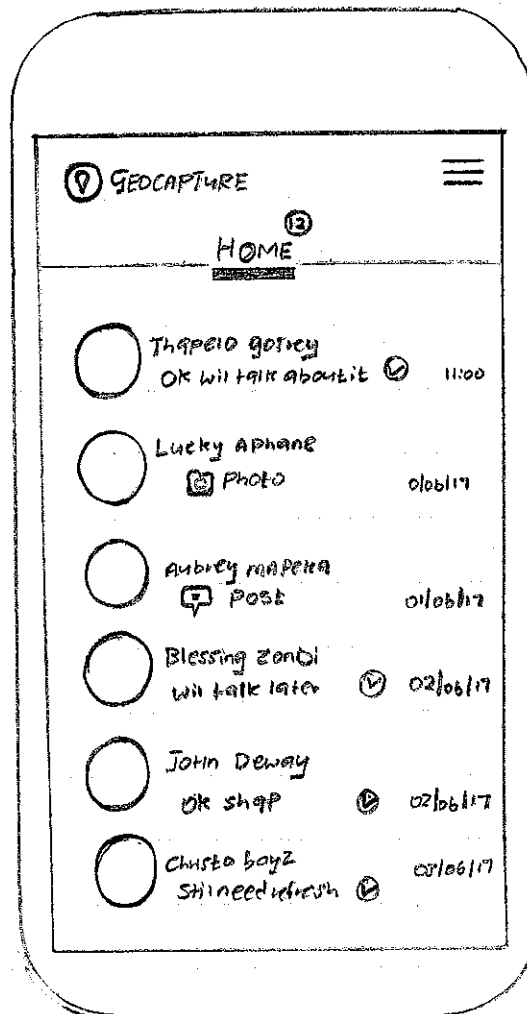 GEOCAPTURE
12
HOME
Thapelo
Ok wil talk about it 11:00
Lucky Aphane
Photo 0/06/17
Aubrey mapeka
Post 01/06/17
Blessing zondi
wil talk later 02/06/17
John Deway
Ok shap 02/06/17
Christo boyz
Stil need refresh